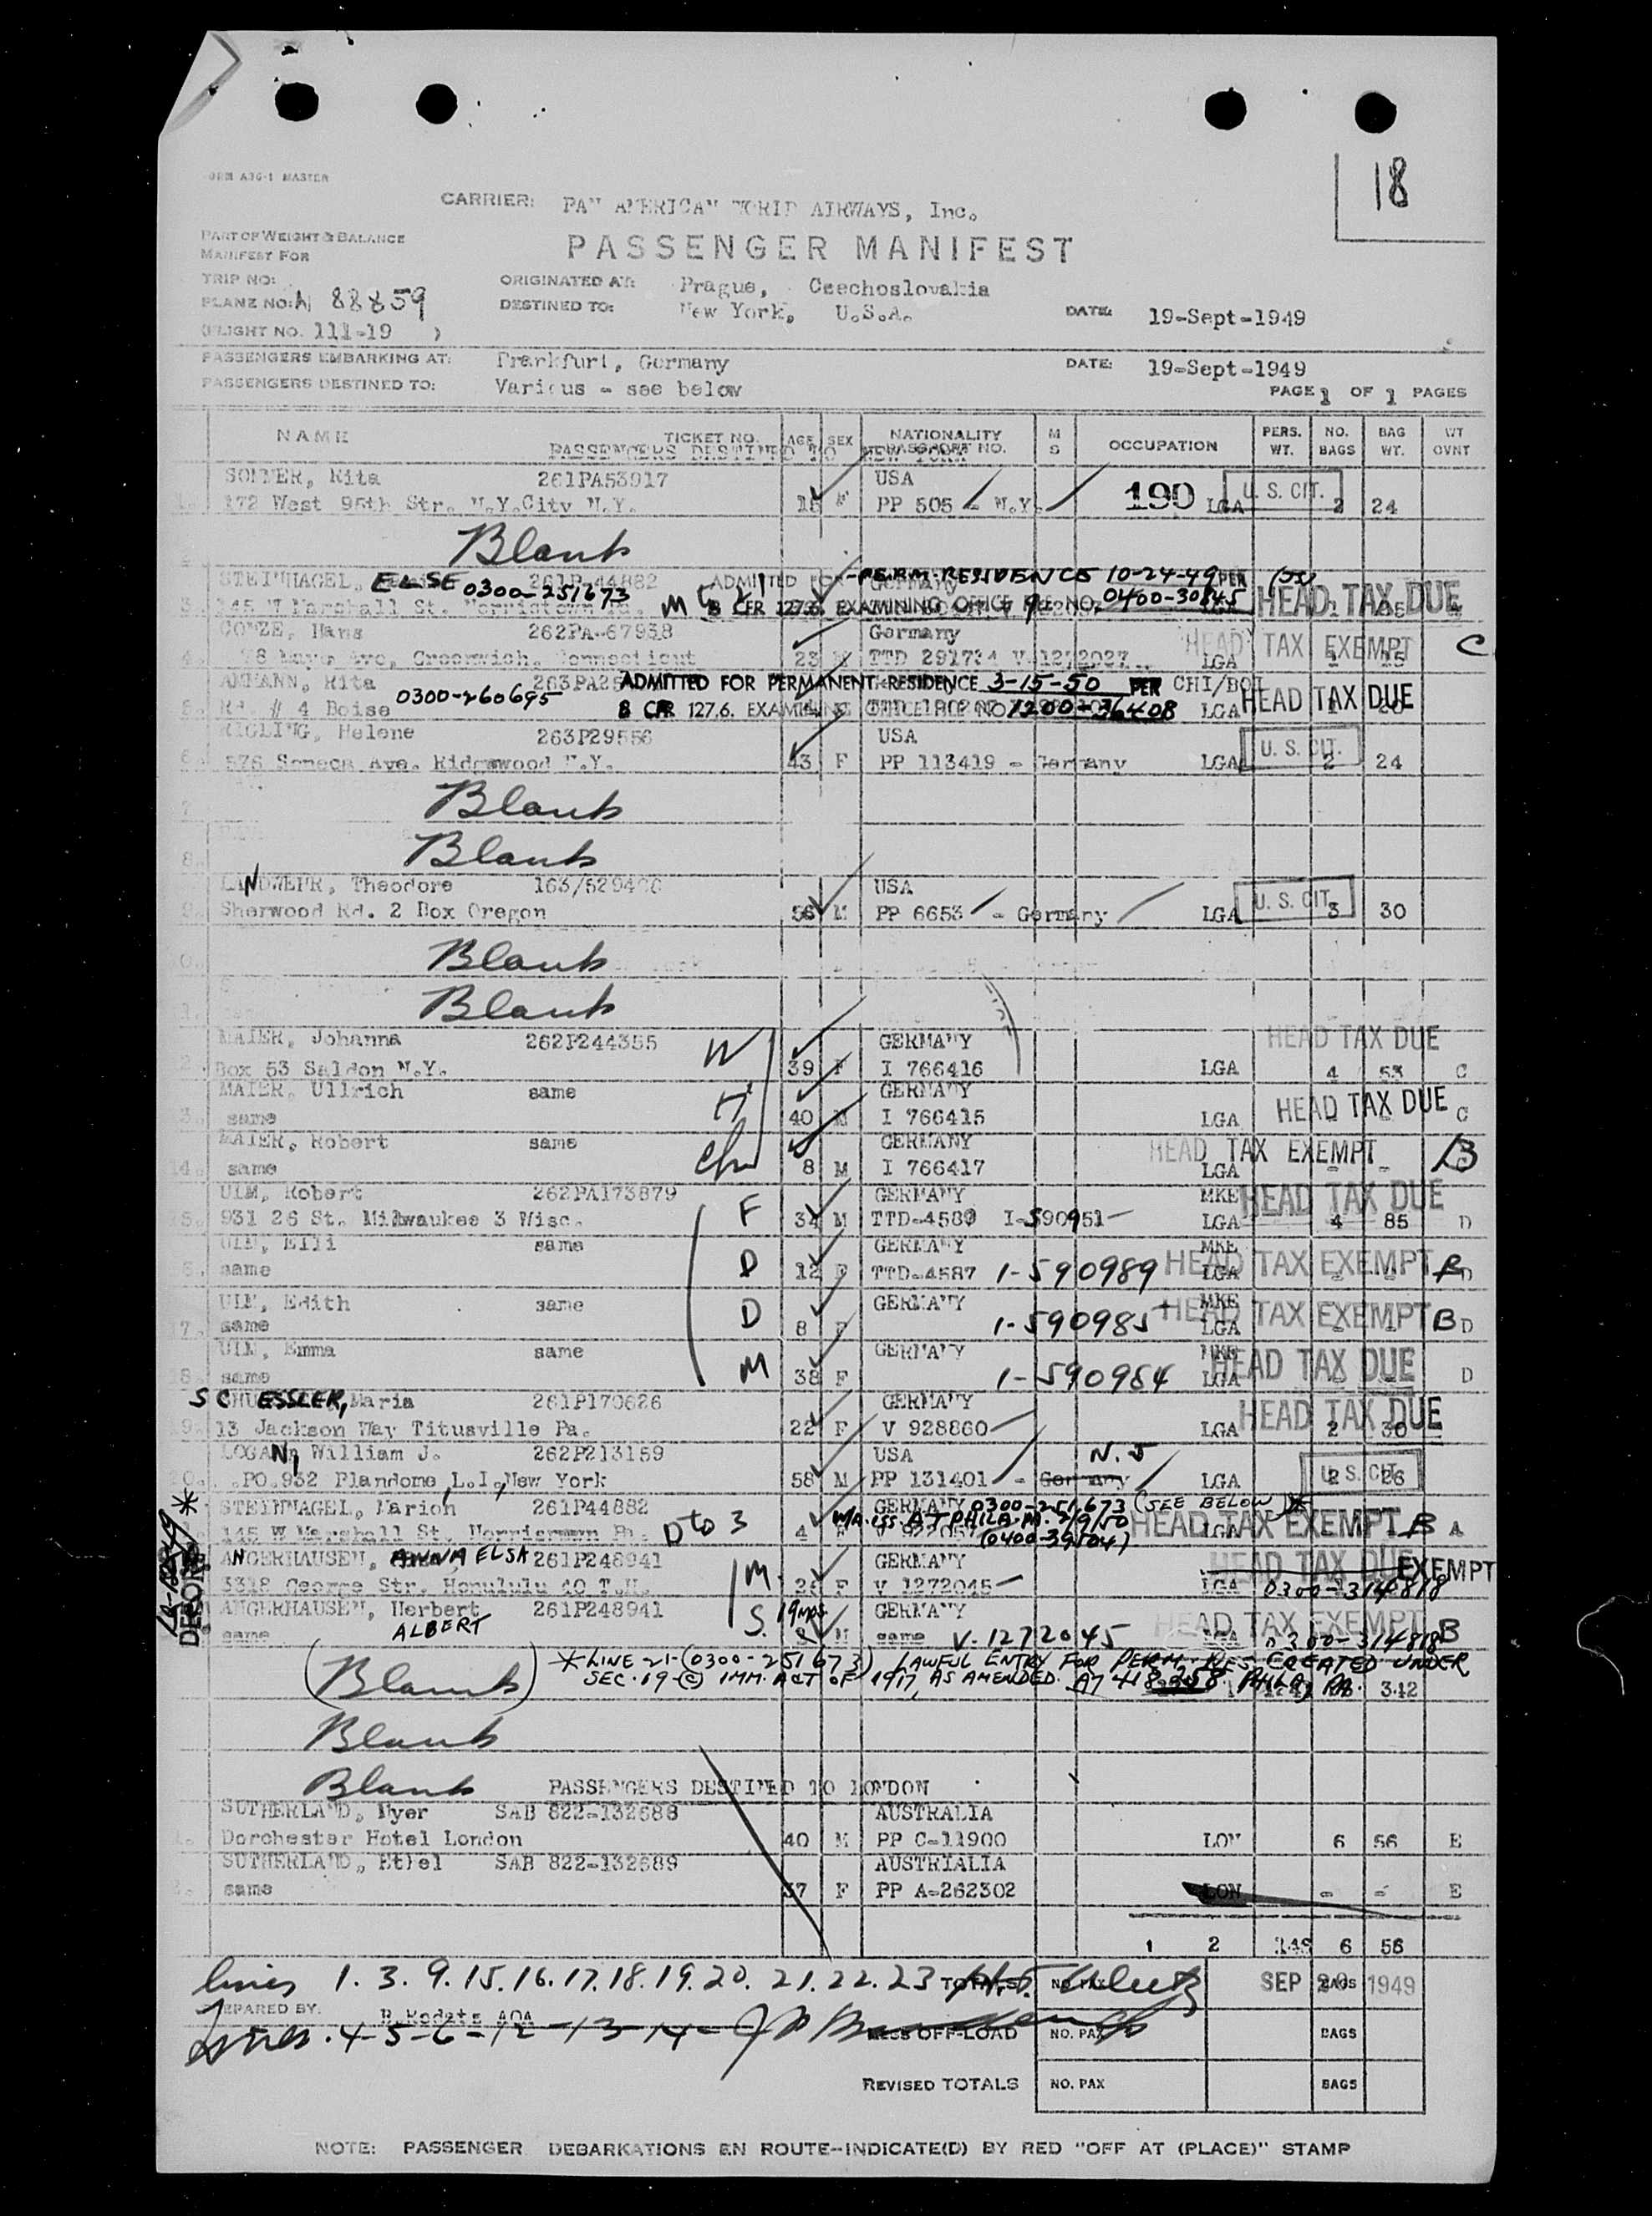 18
FORM A36-1 MASTER
CARRIER: PAN AMERICAN WORLD AIRWAYS, Inc.
PART OF WEIGHT & BALANCE
MANIFEST FOR
PASSENGER MANIFEST
TRIP NO:
ORIGINATED AT: Prague, Czechoslovakia
PLANE NO: N 88859
DESTINED TO: New York, U.S.A.
DATE: 19-Sept-1949
(FLIGHT NO. 111-19 )
PASSENGERS EMBARKING AT: Frankfurt, Germany
DATE: 19-Sept-1949
PASSENGERS DESTINED TO: Various - see below
PAGE 1 OF 1 PAGES
NAME TICKET NO. AGE SEX NATIONALITY PASSPORT NO. M S OCCUPATION PERS. WT. NO. BAGS BAG WT. WT OVNT
PASSENGERS DESTINED TO NEW YORK
Rita 261PA53917 USA
1. 172 West 95th Str. N.Y.City N.Y. F PP 505 - N.Y. 190 LGA U. S. CIT. 2 24
2. Blank
STEINHAGEL, ELSE 0300-251673 261P-44882 ADMITTED FOR PERM. RESIDENCE 10-24-49 PER
3. 145 W Marshall St. Norristown Pa. M 8 CFR 127.6. EXAMINING OFFICE FILE NO. 0400-30845 HEAD TAX DUE
Hans 262PA-67938 Germany
4. Ave, Greenwich, Connecticut 23 M TTD 291734 V 1272027 LGA HEAD TAX EXEMPT C
AMMANN, Rita 0300-260695 ADMITTED FOR PERMANENT RESIDENCE 3-15-50 PER CHI/BOI
5. Rd. # 4 Boise 8 CFR 127.6. EXAMINING OFFICE FILE NO 1200-36408 LGA HEAD TAX DUE
Helene 263P29556 USA
6. 576 Seneca Ave. Ridgewood N.Y. 43 F PP 113419 - Germany LGA U. S. CIT. 2 24
7. Blank
8. Blank
LANDWEHR, Theodore USA
9. Sherwood Rd. 2 Box Oregon 56 M PP 6653 - Germany LGA U. S. CIT. 3 30
10. Blank
11. Blank
MAIER, Johanna 262P244355 W GERMANY HEAD TAX DUE
12. Box 53 Saldon N.Y. 39 F I 766416 LGA 4 53 C
MAIER, Ullrich same H GERMANY
13. same 40 M I 766415 LGA HEAD TAX DUE C
MAIER, Robert same ch GERMANY
14. same 8 M I 766417 LGA HEAD TAX EXEMPT - - B
ULM, Robert 262PA173879 F GERMANY MKE HEAD TAX DUE
15. 931 26 St. Milwaukee 3 Wisc. 34 M TTD-4580 I-590951 LGA 4 85 D
ULM, Elli same D GERMANY MKE
16. same 12 F TTD-4587 1-590989 LGA HEAD TAX EXEMPT D
ULM, Edith same D GERMANY MKE
17. same 8 F 1-590985 LGA HEAD TAX EXEMPT B D
ULM, Emma same M GERMANY MKE
18. same 38 F 1-590984 LGA HEAD TAX DUE D
SCHUESSLER, Maria 261P170626 GERMANY
19. 13 Jackson Way Titusville Pa. 22 F V 928860 LGA HEAD TAX DUE 2 30
LOGAN, William J. 262P213159 USA N.J
20. PO.932 Plandome, L.I, New York 58 M PP 131401 - Germany LGA U.S. CIT. 2 26
STEINHAGEL, Marion 261P44882 GERMANY 0300-251673 (SEE BELOW)*
21. 145 W Marshall St. Norristown Pa. D to 3 4 ISS. AT PHILA. PA. 2/9/50 (0400-39504) LGA HEAD TAX EXEMPT B A
ANGERHAUSEN, ANNA ELSA 261P248941 M. GERMANY HEAD TAX DUE EXEMPT
3318 George Str. Honululu 40 T.H. F V 1272045 LGA 0300-314818
ANGERHAUSEN, Herbert 261P248941 S. 19 mos GERMANY HEAD TAX EXEMPT
same ALBERT M same V-1272045 0300-314818 B
(Blank) *LINE-21-(0300-251673) LAWFUL ENTRY FOR PERM. RES. CREATED UNDER
SEC. 19-(C) IMM. ACT OF 1917, AS AMENDED. PHILA, PA. 342
Blank
Blank PASSENGERS DESTINED TO LONDON
SUTHERLAND, Myer SAB 822-132688 AUSTRALIA
1. Dorchester Hotel London 40 M PP C-11900 LON 6 56 E
SUTHERLAND, Ethel SAB 822-132689 AUSTRIALIA
2. same 37 F PP A-262302 LON - - E
1 2 148 6 56
lines 1. 3. 9. 15. 16. 17. 18. 19. 20. 21. 22. 23 TOTALS NO. PAX SEP 20 BAGS 1949
PREPARED BY.
Lines. 4-5-6-12-13-14- LESS OFF-LOAD NO. PAX BAGS
REVISED TOTALS NO. PAX BAGS
NOTE: PASSENGER DEBARKATIONS EN ROUTE--INDICATE(D) BY RED "OFF AT (PLACE)" STAMP